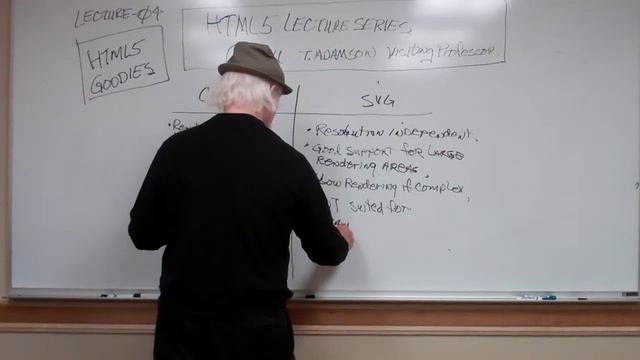 LECTURE-04
HTML5 LECTURE SERIES
HTML5
GOODIES
T. ADAMSON Visiting Professor
C
SVG
• Resolution independent,
• Good support for LARGE
Rendering AREAS,
Slow Rendering if complex,
suited for